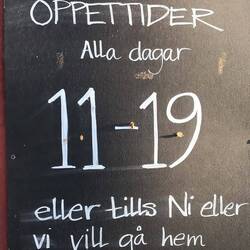 ÖPPETTIDER
Alla dagar
11-19
eller tills Ni eller
vi vill gå hem